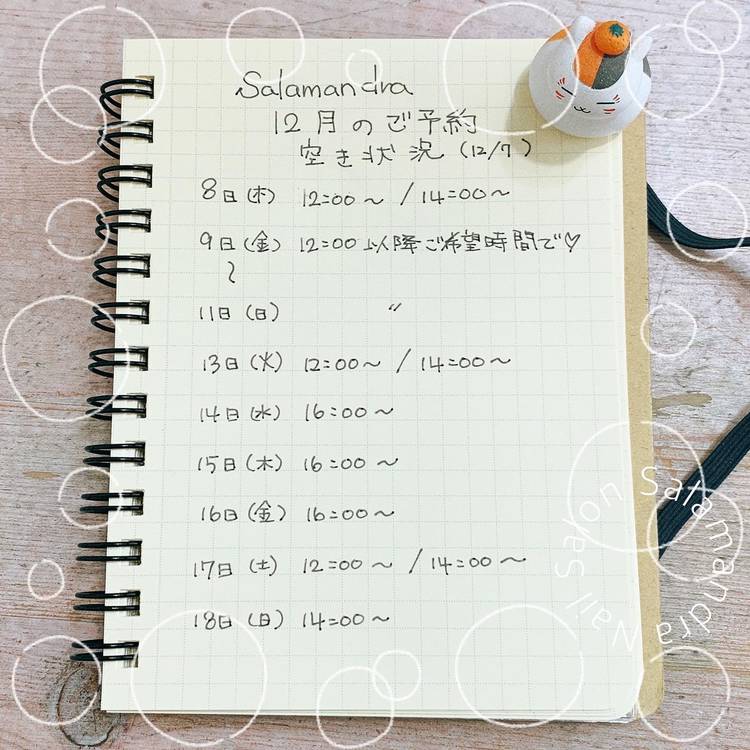 Salamandra
12月のご予約
空き状況 (12/7)
8日(木) 12:00〜 / 14:00〜
9日(金) 12:00 以降ご希望時間で♡
〜
11日(日) 〃
13日(火) 12:00〜 / 14:00〜
14日(水) 16:00〜
15日(木) 16:00〜
16日(金) 16:00〜
17日(土) 12:00〜 / 14:00〜
18日(日) 14:00〜
Nail Salon Salamandra